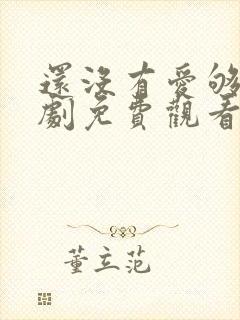 還沒有愛够
劇免費觀看
董立范